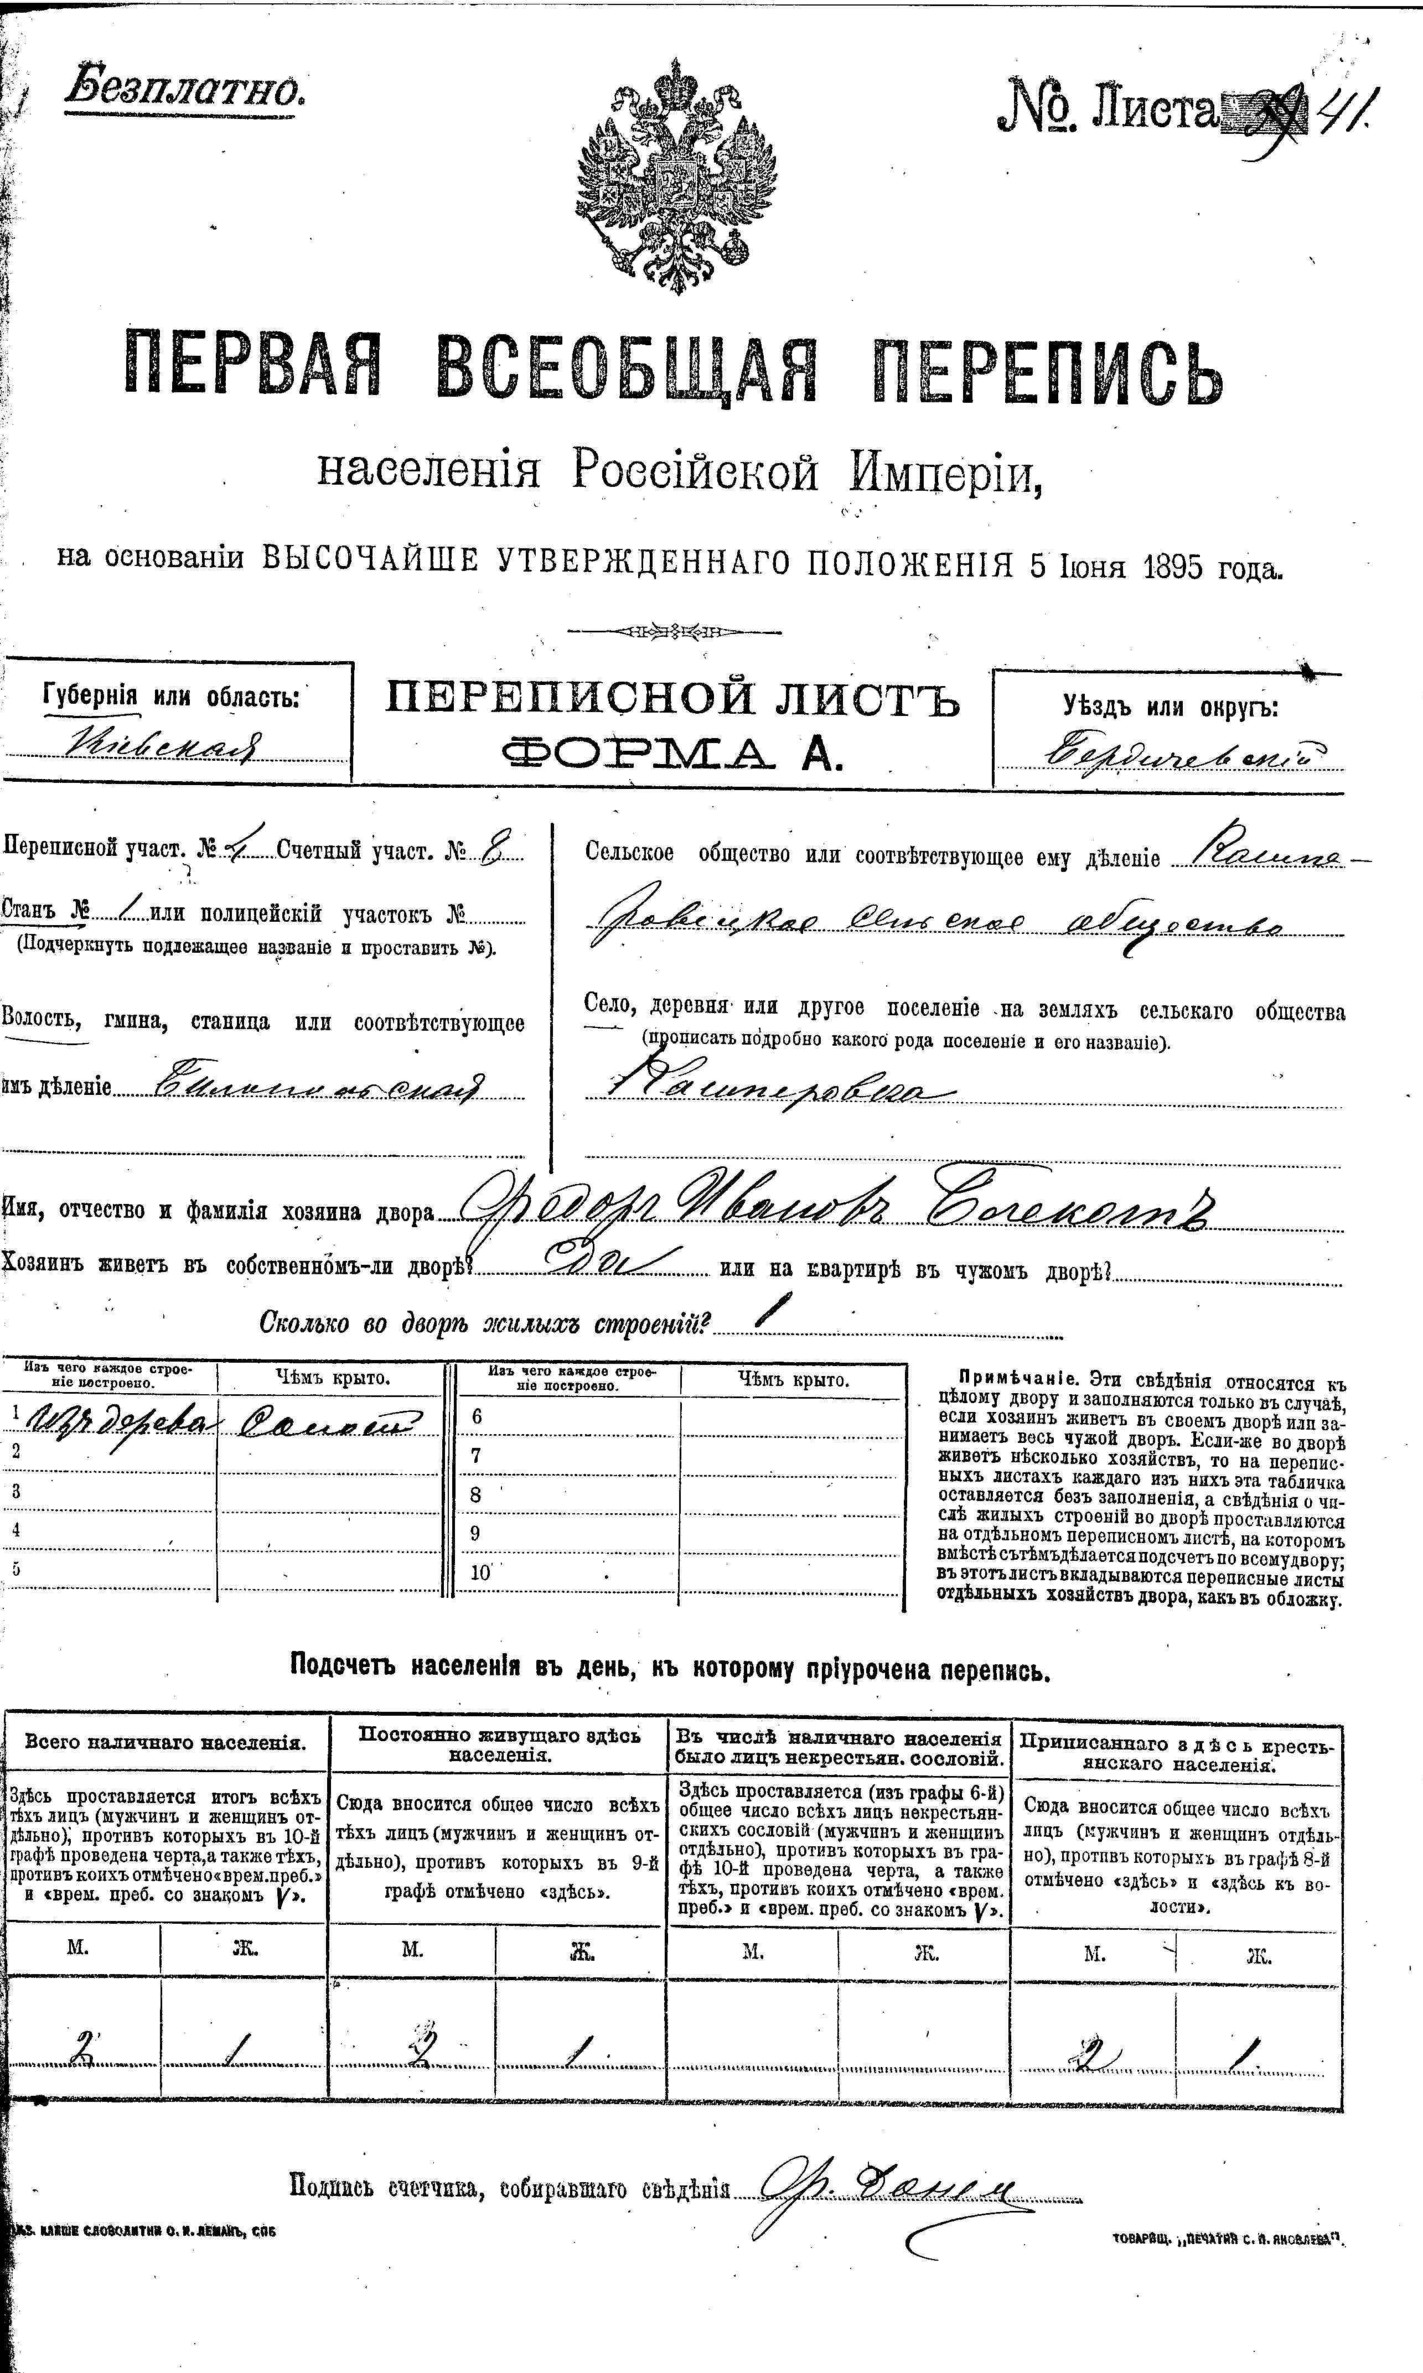 Безплатно.
№. Листа 41.
ПЕРВАЯ ВСЕОБЩАЯ ПЕРЕПИСЬ
населенія Россійской Имперіи,
на основаніи ВЫСОЧАЙШЕ УТВЕРЖДЕННАГО ПОЛОЖЕНІЯ 5 Іюня 1895 года.
Губернія или область:
Кіевская
ПЕРЕПИСНОЙ ЛИСТЪ
ФОРМА А.
Уѣздъ или округъ:
Бердичевскій
Переписной участ. № 4 Счетный участ. № 8
Станъ № 1 или полицейскій участокъ №
(Подчеркнуть подлежащее названіе и проставить №).
Волость, гмина, станица или соотвѣтствующее
имъ дѣленіе Билопольская
Сельское общество или соотвѣтствующее ему дѣленіе Кашпе-
ровецкое сельское общество
Село, деревня или другое поселеніе на земляхъ сельскаго общества
(прописать подробно какого рода поселеніе и его названіе).
Кашперовка
Имя, отчество и фамилія хозяина двора Федоръ Ивановъ
Хозяинъ живетъ въ собственномъ-ли дворѣ? Да или на квартирѣ въ чужомъ дворѣ?
Сколько во дворѣ жилыхъ строеній? 1
Изъ чего каждое строе-
ніе построено.
Чѣмъ крыто.
Изъ чего каждое строе-
ніе построено.
Чѣмъ крыто.
1 Изъ дерева 6
2 7
3 8
4 9
5 10
Примѣчаніе. Эти свѣдѣнія относятся къ
цѣлому двору и заполняются только въ случаѣ,
если хозяинъ живетъ въ своемъ дворѣ или за-
нимаетъ весь чужой дворъ. Если-же во дворѣ
живетъ нѣсколько хозяйствъ, то на перепис-
ныхъ листахъ каждаго изъ нихъ эта табличка
оставляется безъ заполненія, а свѣдѣнія о чи-
слѣ жилыхъ строеній во дворѣ проставляются
на отдѣльномъ переписномъ листѣ, на которомъ
вмѣстѣ съ тѣмъ дѣлается подсчетъ по всему двору;
въ этотъ листъ вкладываются переписные листы
отдѣльныхъ хозяйствъ двора, какъ въ обложку.
Подсчетъ населенія въ день, къ которому пріурочена перепись.
Всего наличнаго населенія.
Здѣсь проставляется итогъ всѣхъ
тѣхъ лицъ (мужчинъ и женщинъ от-
дѣльно), противъ которыхъ въ 10-й
графѣ проведена черта, а также тѣхъ,
противъ коихъ отмѣчено «врем. преб.»
и «врем. преб. со знакомъ V».
Постоянно живущаго здѣсь
населенія.
Сюда вносится общее число всѣхъ
тѣхъ лицъ (мужчинъ и женщинъ от-
дѣльно), противъ которыхъ въ 9-й
графѣ отмѣчено «здѣсь».
Въ числѣ наличнаго населенія
было лицъ некрестьян. сословій.
Здѣсь проставляется (изъ графы 6-й)
общее число всѣхъ лицъ некрестьян-
скихъ сословій (мужчинъ и женщинъ
отдѣльно), противъ которыхъ въ гра-
фѣ 10-й проведена черта, а также
тѣхъ, противъ коихъ отмѣчено «врем.
преб.» и «врем. преб. со знакомъ V».
Приписаннаго здѣсь кресть-
янскаго населенія.
Сюда вносится общее число всѣхъ
лицъ (мужчинъ и женщинъ отдѣль-
но), противъ которыхъ въ графѣ 8-й
отмѣчено «здѣсь» и «здѣсь къ во-
лости».
М. Ж. М. Ж. М. Ж. М. Ж.
2 1 2 1 2 1
Подпись счетчика, собиравшаго свѣдѣнія
СЛОВОЛИТНИ О. И. ЛЕМАНЪ, СПБ
ТОВАРИЩ. „ПЕЧАТНИ С. П. ЯКОВЛЕВА".